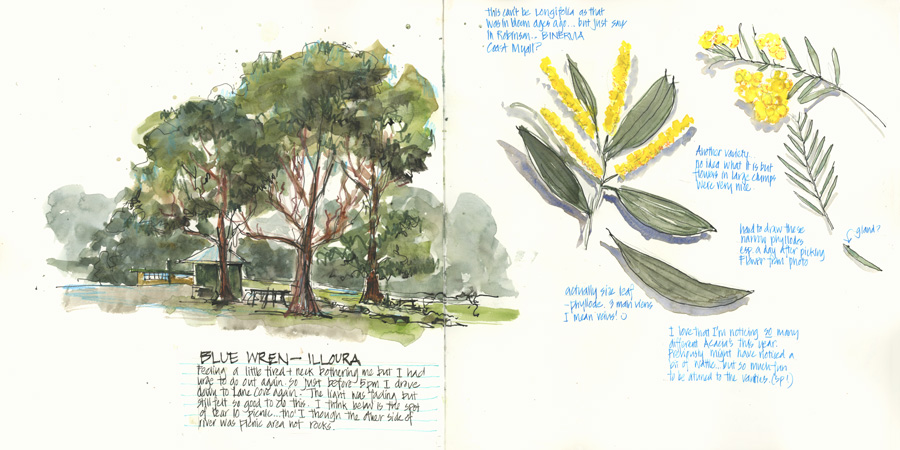 BLUE WREN - ILLOURA
Feeling a little tired + neck bothering me but I had
urge to go out again. So just before 5pm I drove
down to Lane Cove again. The light was fading but
still felt so good to do this. I think below is the spot
of Year 10 picnic...tho' I though the other side of
river was picnic area not rocks.
this can't be Longifolia as that
was in bloom ages ago... but just saw
in Robinson... BINERVIA
Coast Myall?
Another variety
no idea what it is but
flowers in large clumps
were very nice
hard to draw these
narrow phyllodes
esp a day after picking
Flower from photo
gland?
actually size leaf
-phyllode. 3 main viens
I mean veins! :)
I love that I'm noticing so many
different Acacia's this year.
Previously might have noticed a
bit of wattle...but so much fun
to be attuned to the varities. (sp!)